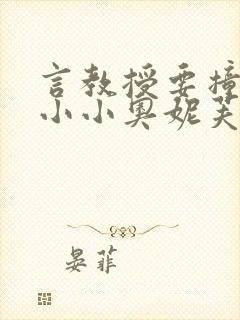 言教授要撞
小小奥妮芙
晏菲